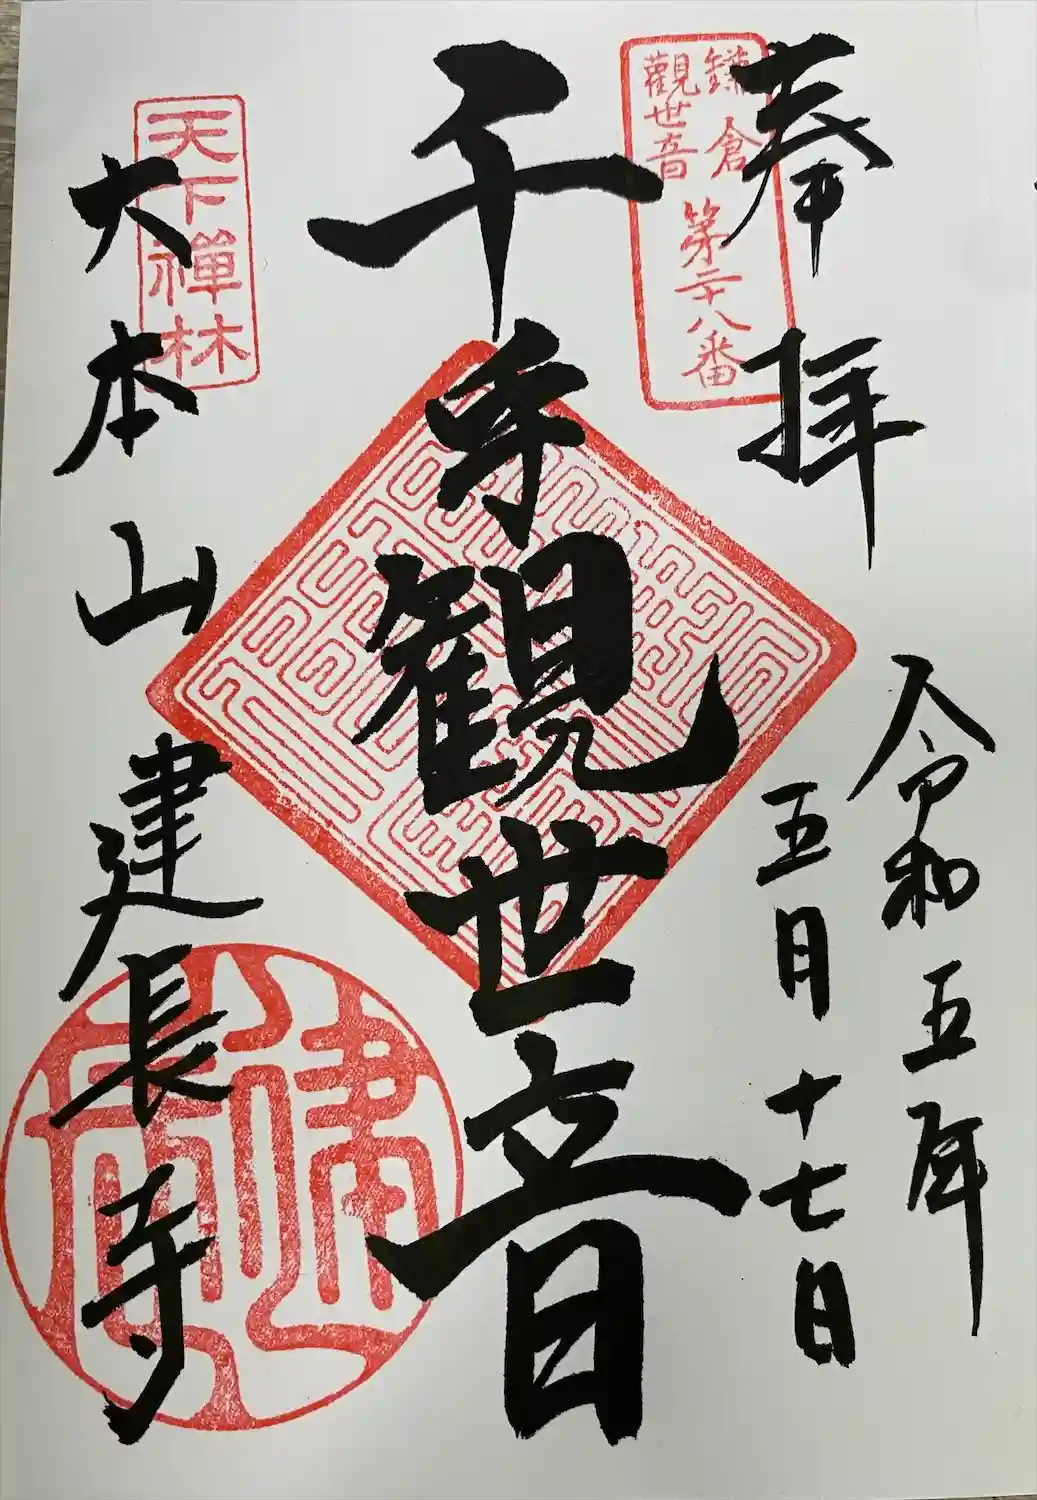 奉拝
令和五年
五月十七日
鎌倉
觀世音
第二十八番
千手観世音
天下禅林
大本山建長寺